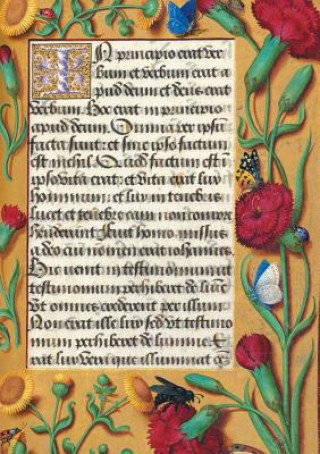 In principio erat ver
bum et verbum erat a
pud deum et deus erat
verbum. Hoc erat in principio
apud deum. Omnia per ipsū
facta sunt: et sine ipso factum
est nichil. Quod factum est ī
ipso vita erat: et vita erat lux
hominum: et lux in tenebris
lucet et tenebre eam non compre
henderunt Fuit homo missus
a deo cui nomen erat iohannes.
Hic venit in testimonium ut
testimonium perhiberet de lumī
Vt omnes crederent per illum
Non erat ille lux sed vt testimo
nium perhiberet de lumine E
rat lux vera que illuminat oē